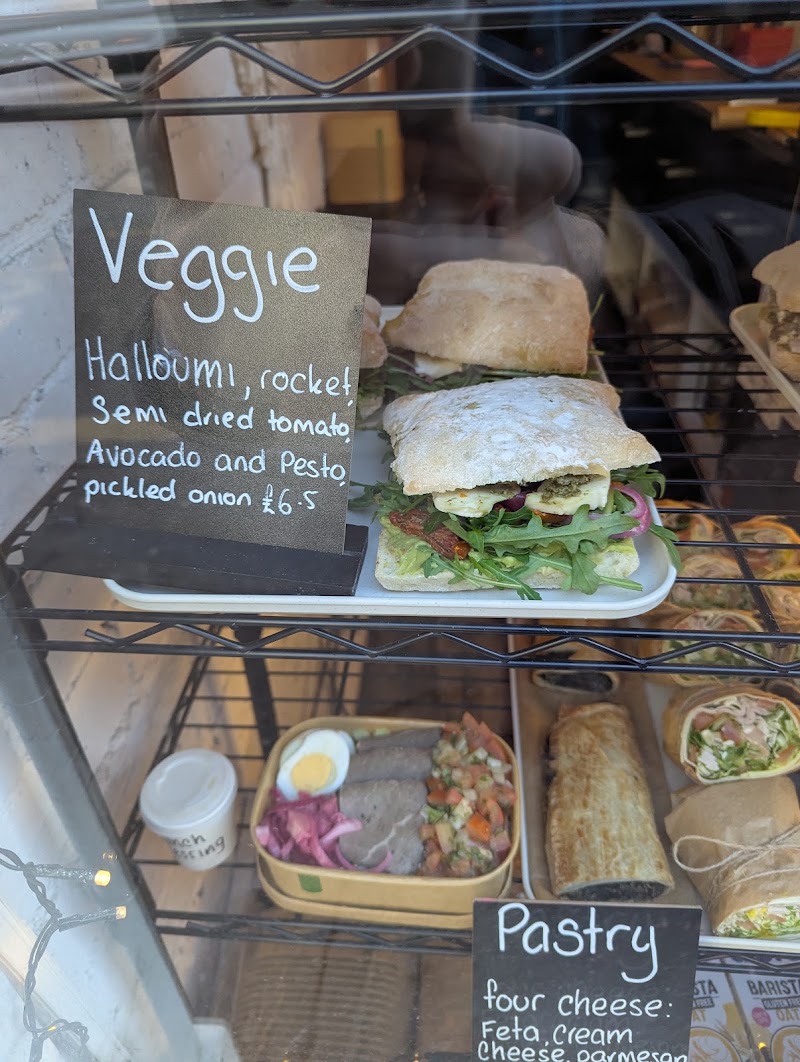 Veggie
Halloumi, rocket,
Semi dried tomato,
Avocado and Pesto,
pickled onion £6.5
Pastry
four cheese:
Feta, Cream
Cheese, parmesan
BARISTA
GLUTEN FREE
OAT